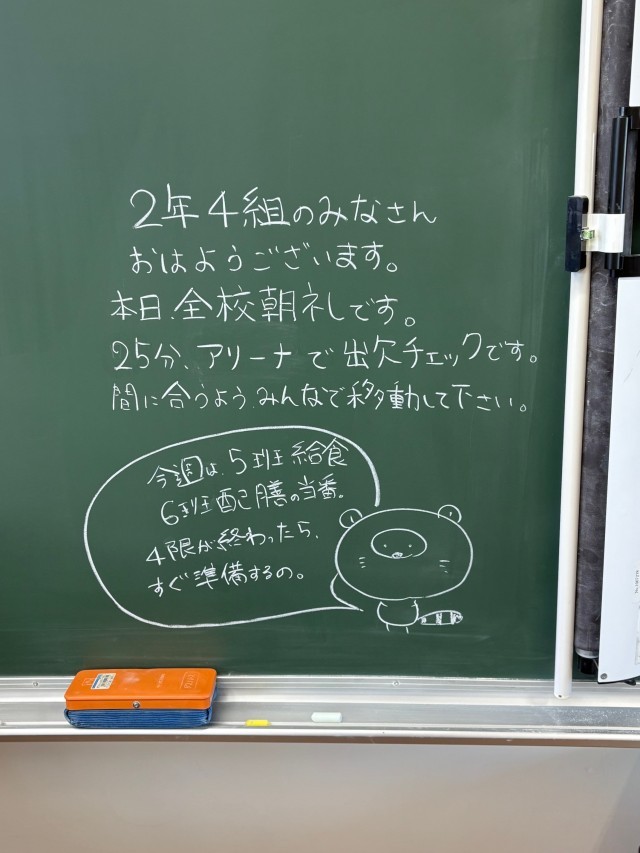 2年4組のみなさん
おはようございます。
本日、全校朝礼です。
25分、アリーナで出欠チェックです。
間に合うよう、みんなで移動して下さい。
今週は、5班 給食
6班 配膳の当番。
4限が終わったら、
すぐ準備するの。